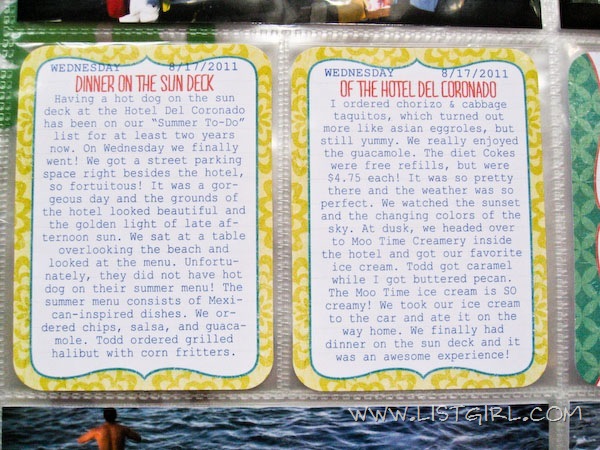 WEDNESDAY 8/17/2011
DINNER ON THE SUN DECK
Having a hot dog on the sun
deck at the Hotel Del Coronado
has been on our “Summer To-Do”
list for at least two years
now. On Wednesday we finally
went! We got a street parking
space right besides the hotel,
so fortuitous! It was a gor-
geous day and the grounds of
the hotel looked beautiful and
the golden light of late af-
ternoon sun. We sat at a table
overlooking the beach and
looked at the menu. Unfortu-
nately, they did not have hot
dog on their summer menu! The
summer menu consists of Mexi-
can-inspired dishes. We or-
dered chips, salsa, and guaca-
mole. Todd ordered grilled
halibut with corn fritters.
WEDNESDAY 8/17/2011
OF THE HOTEL DEL CORONADO
I ordered chorizo & cabbage
taquitos, which turned out
more like asian eggroles, but
still yummy. We really enjoyed
the guacamole. The diet Cokes
were free refills, but were
$4.75 each! It was so pretty
there and the weather was so
perfect. We watched the sunset
and the changing colors of the
sky. At dusk, we headed over
to Moo Time Creamery inside
the hotel and got our favorite
ice cream. Todd got caramel
while I got buttered pecan.
The Moo Time ice cream is SO
creamy! We took our ice cream
to the car and ate it on the
way home. We finally had
dinner on the sun deck and it
was an awesome experience!
WWW.LISTGIRL.COM